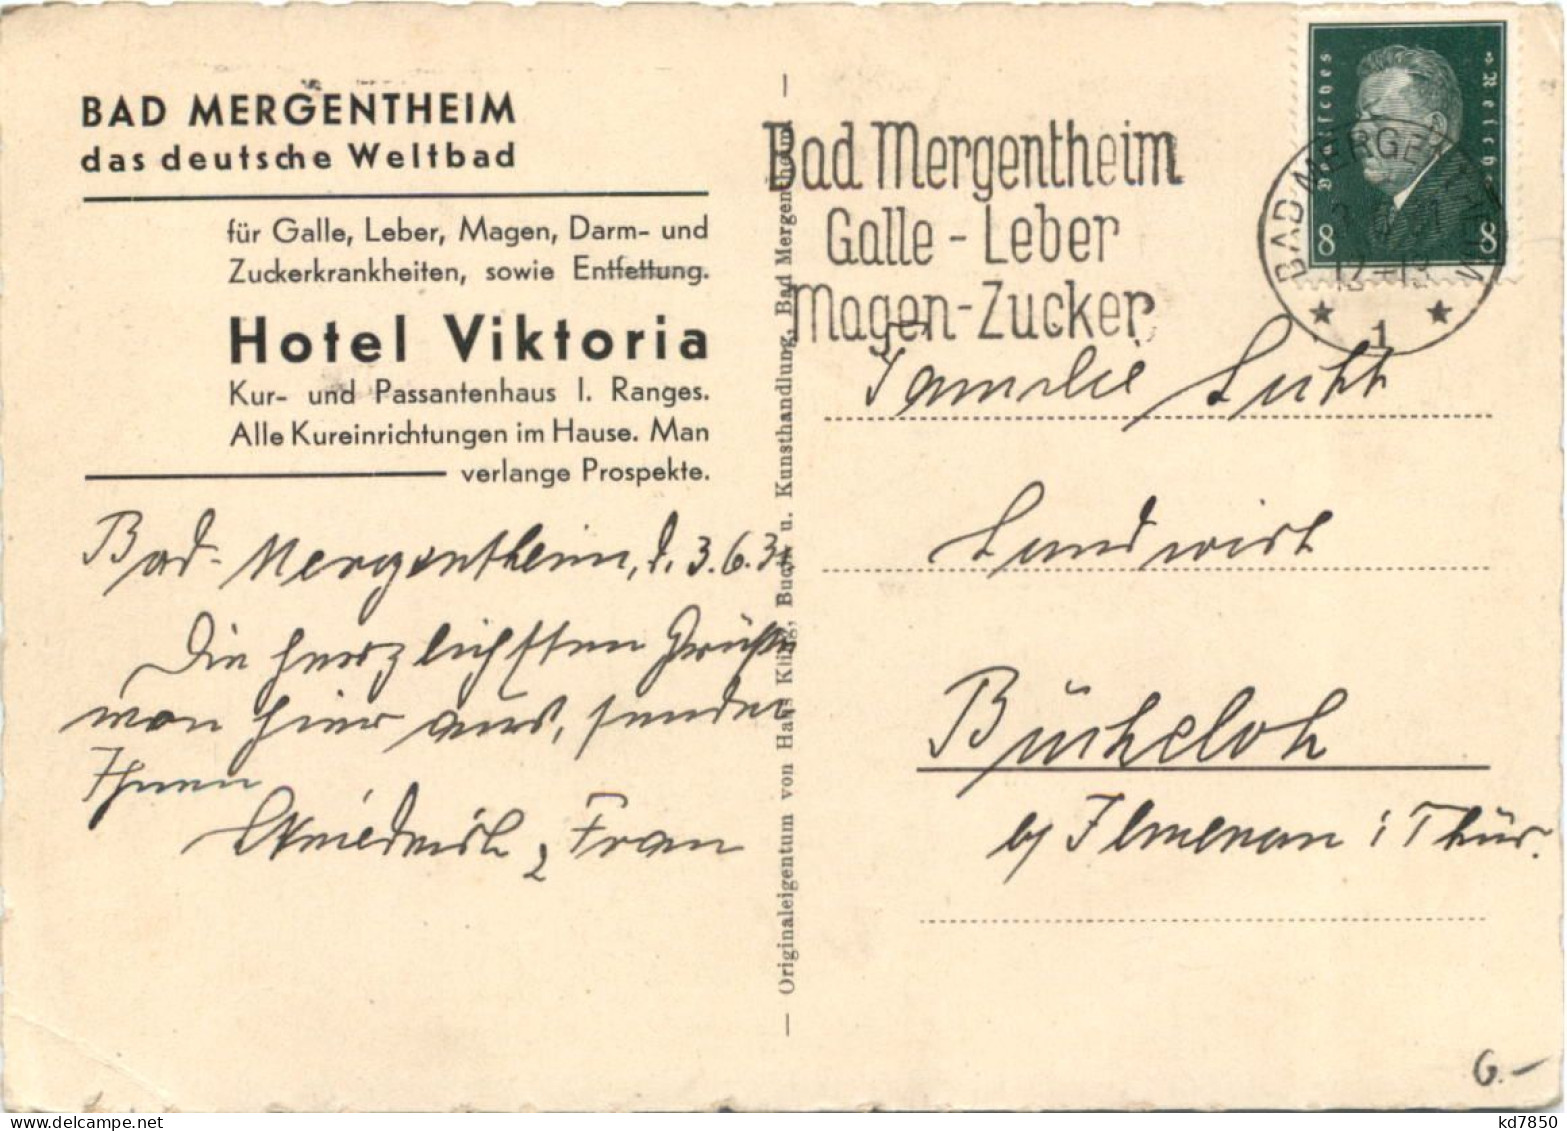 BAD MERGENTHEIM
das deutsche Weltbad
für Galle, Leber, Magen, Darm- und
Zuckerkrankheiten, sowie Entfettung.
Hotel Viktoria
Kur- und Passantenhaus I. Ranges.
Alle Kureinrichtungen im Hause. Man
verlange Prospekte.
Bad-Mergentheim, d. 3.6.31
Die herzlichsten Grüße
von hier aus, sendet
Ihnen
Frau
— Originaleigentum von Hans Kling, Buch- u. Kunsthandlung, Bad Mergentheim —
Bad Mergentheim
Galle - Leber
Magen-Zucker
Deutsches Reich
8 8
BAD MERGENTHEIM
12-13
1
Familie
Landwirt
Bücheloh
by Ilmenau i Thür.
6.-
kd7850